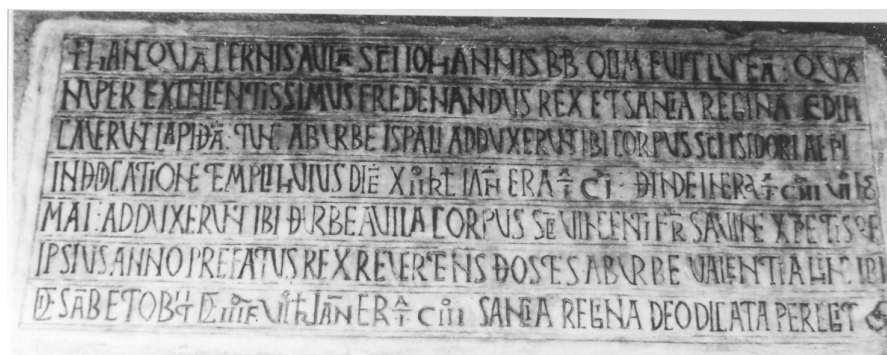 † HANC QUĀ CERNIS AULĀ SCĪ IOHANNIS BB OLIM FUIT LUTEĀ : QUĀ
NUPER EXCELLENTISSIMUS FREDENANDUS REX ET SANCIA REGINA EDIFI
CAVERUNT LAPIDEĀ : TUNC AB URBE ISPALI ADDUXERUNT IBI CORPUS SCI ISIDORI AEPI
IN DEDICATIONE TEMPLI HUIUS DIĒ XII KL IAN̄R ERA T CI : DEINDE IN ERA T CIII VI ID
MAI : ADDUXERUNT IBI DE URBE AVILA CORPUS SCĪ VINCENTI FR̄ SAVINE XPETISQE
IPSIUS ANNO PREFATUS REX REVERTENS DE OSTES AB URBE VALENTIA HINC IBI
DĒ SABBĀTO OBIIT DĒ III F VI KL IAN̄R ERA T CIII SANCIA REGINA DEO DICATA PEREGIT